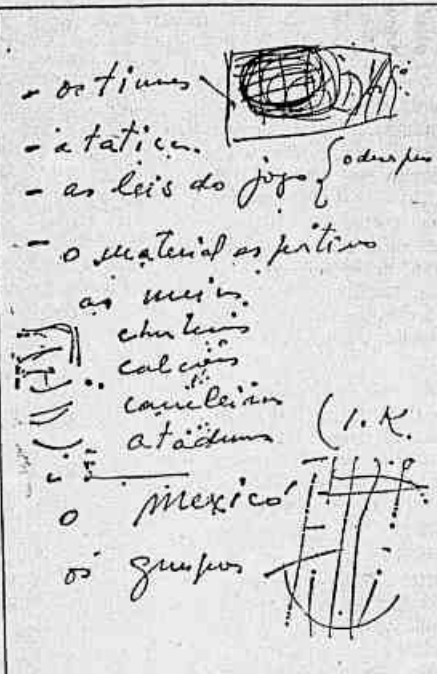 - os times
- a tatica.
- as leis do jogo {
- o material esportivo
as meias
chuteiras
calções
caneleiras
ataduras
(I. K.
o mexico
os grupos